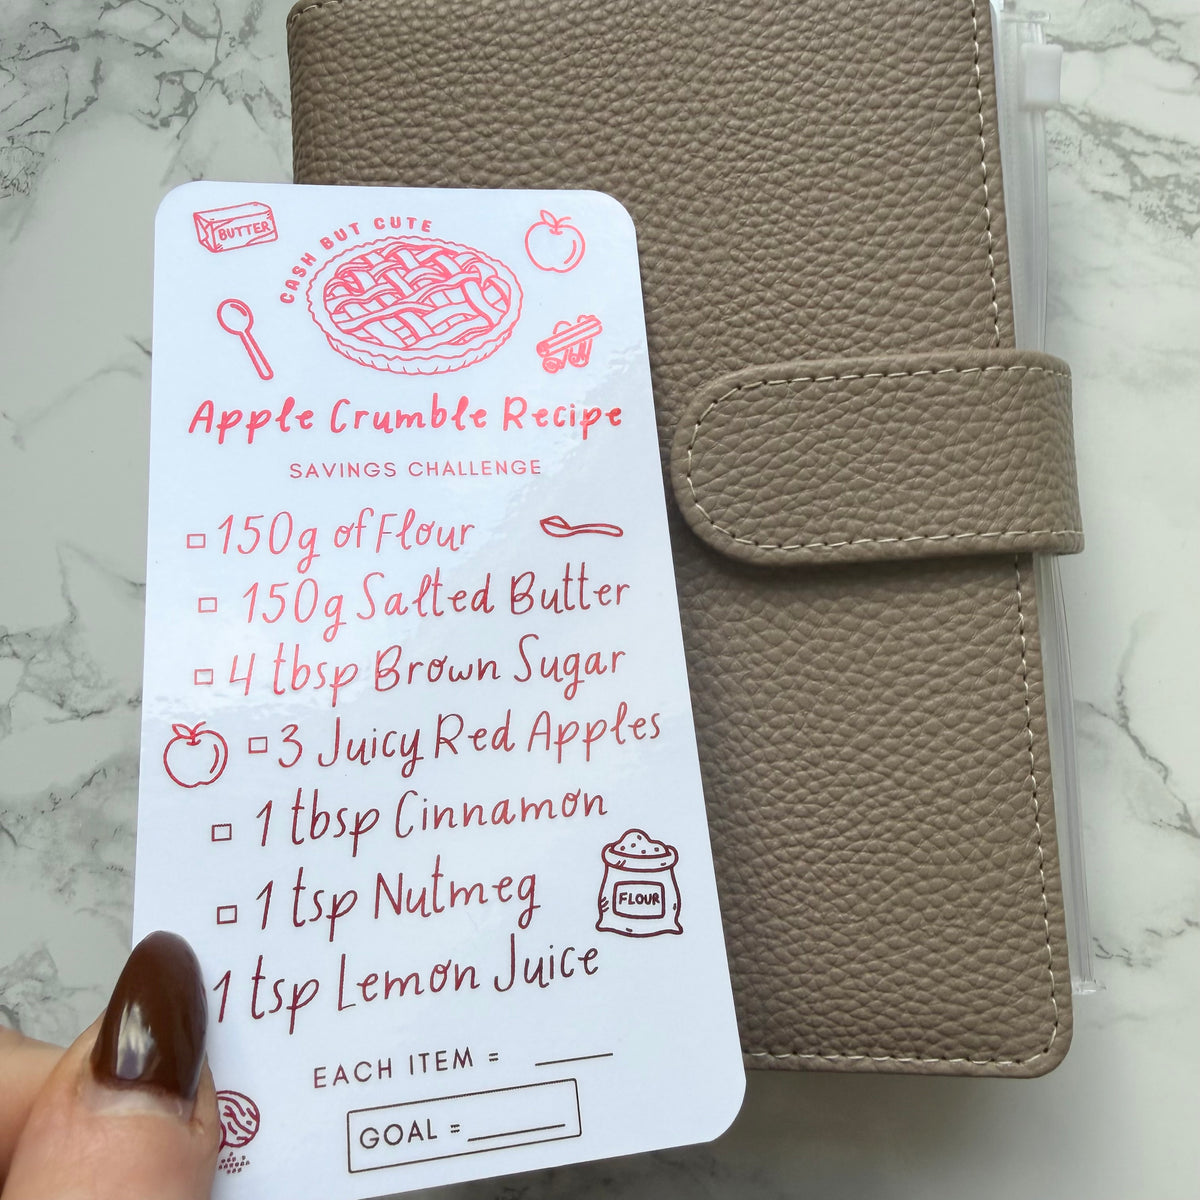 BUTTER
CASH BUT CUTE
Apple Crumble Recipe
SAVINGS CHALLENGE
150g of Flour
150g Salted Butter
4 tbsp Brown Sugar
3 Juicy Red Apples
1 tbsp Cinnamon
1 tsp Nutmeg
FLOUR
1 tsp Lemon Juice
EACH ITEM = ____
GOAL = ____